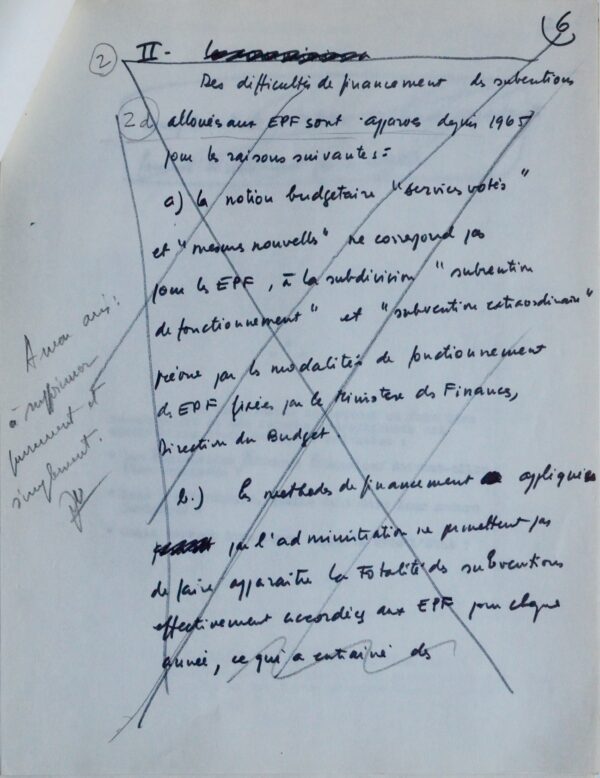 6
2 II-
Des difficultés de financement des subventions
2d allouées aux EPF sont apparues depuis 1965
pour les raisons suivantes :
a) la notion budgétaire "services votés"
et "mesures nouvelles" ne correspond pas
pour les EPF, à la subdivision "subvention
de fonctionnement" et "subvention extraordinaire"
prévue par les modalités de fonctionnement
des EPF fixées par le Ministère des Finances,
Direction du Budget.
b.) les méthodes de financement appliquées
par l'administration ne permettent pas
de faire apparaître la Totalité des subventions
effectivement accordées aux EPF pour chaque
année, ce qui a entraîné des
A mon avis :
à supprimer
purement et
simplement.